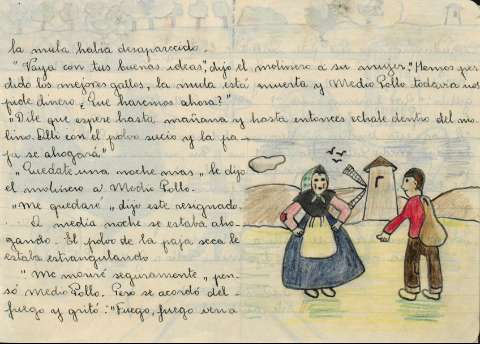 la mula había desaparecido.
"Vaya con tus buenas ideas", dijo el molinero a su mujer. "Hemos per
dido los mejores gallos, la mula está muerta y Medio Pollo todavía nos
pide dinero. ¿Que haremos ahora?"
"Dile que espere hasta mañana y hasta entonces echale dentro del mo-
lino. Allí con el polvo sucio y la pa-
ja se ahogará"
"Quedate una noche mas", le dijo
el molinero a Medio Pollo.
"Me quedaré", dijo este resignado.
A media noche se estaba aho-
gando. El polvo de la paja seca le
estaba estrangulando
"Me moriré seguramente", pen-
só Medio Pollo. Pero se acordó del
fuego y gritó: "Fuego, fuego ven a